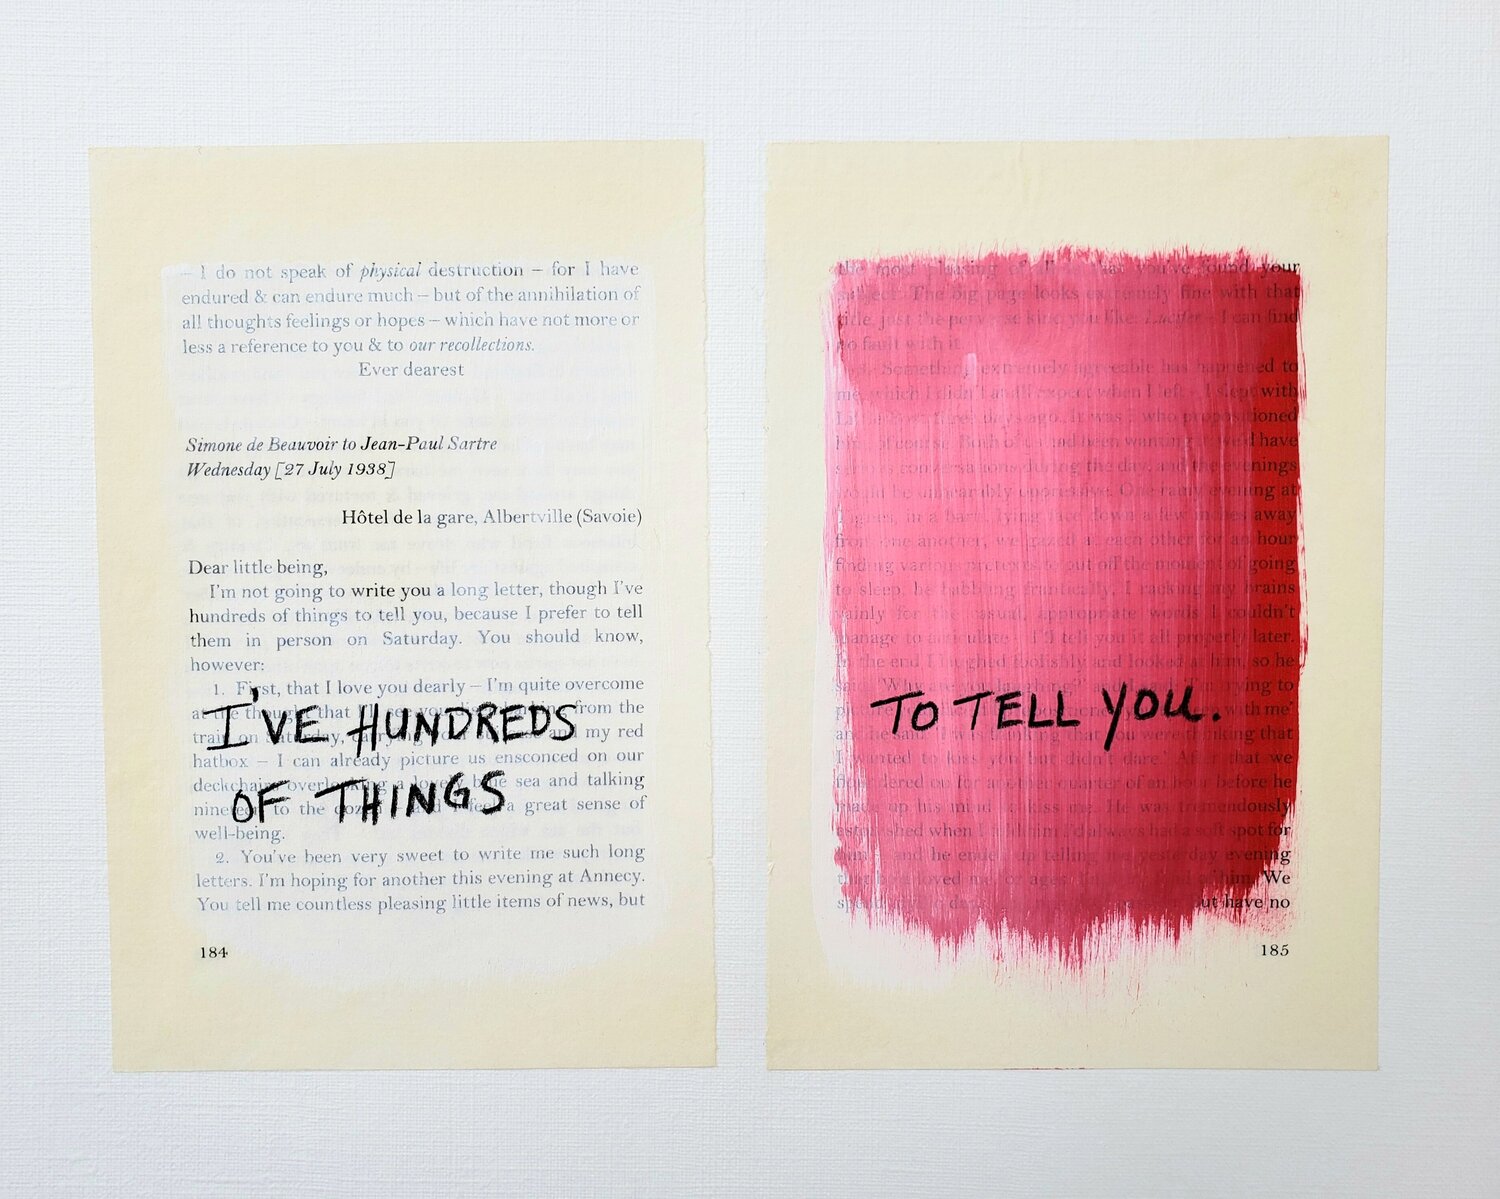 – I do not speak of physical destruction – for I have
endured & can endure much – but of the annihilation of
all thoughts feelings or hopes – which have not more or
less a reference to you & to our recollections.
Ever dearest
Simone de Beauvoir to Jean-Paul Sartre
Wednesday [27 July 1938]
Hôtel de la gare, Albertville (Savoie)
Dear little being,
I'm not going to write you a long letter, though I've
hundreds of things to tell you, because I prefer to tell
them in person on Saturday. You should know,
however:
1. First, that I love you dearly – I'm quite overcome
at the thought that I see you from the
train on Saturday, carrying my and my red
hatbox – I can already picture us ensconced on our
deckchairs overlooking a lovely blue sea and talking
nineteen to the dozen and I feel a great sense of
well-being.
2. You've been very sweet to write me such long
letters. I'm hoping for another this evening at Annecy.
You tell me countless pleasing little items of news, but
184
I'VE HUNDREDS
OF THINGS
the most pleasing of all is that you've found your
subject. The big page looks extremely fine with that
title, just the perverse kind you like: Lucifer – I can find
no fault with it.
Something extremely agreeable has happened to
me, which I didn't at all expect when I left – I slept with
three days ago. It was I who propositioned
him, of course. Both of us had been wanting it: we'd have
conversations during the day, and the evenings
would be unbearably oppressive. One rainy evening at
Tignes, in a barn, lying face down a few inches away
from one another, we gazed at each other for an hour
finding various pretexts to put off the moment of going
to sleep, he babbling frantically, I racking my brains
vainly for the casual, appropriate words I couldn't
manage to articulate – I'll tell you it all properly later.
In the end I laughed foolishly and looked at him, so he
said 'Why are you laughing?' and I said 'I'm trying to
picture with me'
and he said 'I was thinking that you were thinking that
I wanted to kiss you but didn't dare.' After that we
floundered on for another quarter of an hour before he
made up his mind to kiss me. He was tremendously
astonished when I told him I'd always had a soft spot for
him – and he ended up telling me yesterday evening
that he'd loved me for ages. of him. We
but have no
185
TO TELL YOU.